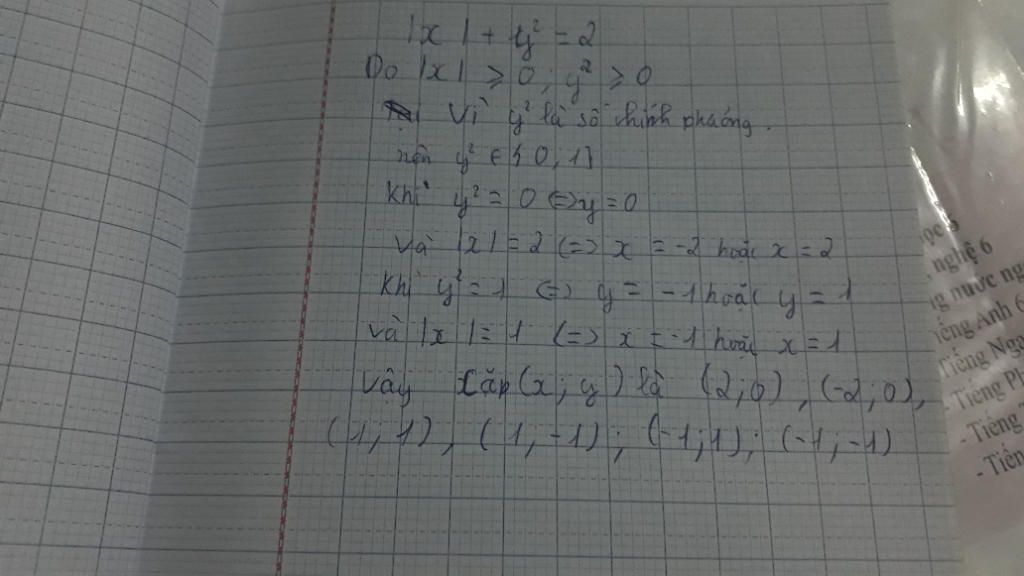 |x| + y² = 2
Do |x| ≥ 0; y² ≥ 0
Vì y² là số chính phương.
nên y² ∈ {0; 1}
Khi y² = 0 <=> y = 0
và |x| = 2 <=> x = -2 hoặc x = 2
Khi y² = 1 <=> y = -1 hoặc y = 1
và |x| = 1 <=> x = -1 hoặc x = 1
vậy cặp (x; y) là (2; 0), (-2; 0),
(1; 1), (1, -1); (-1; 1); (-1; -1)
nghệ 6
Tiếng Anh 6
Tiếng Nga
- Tiếng Ph
- Tiếng
- Tiến